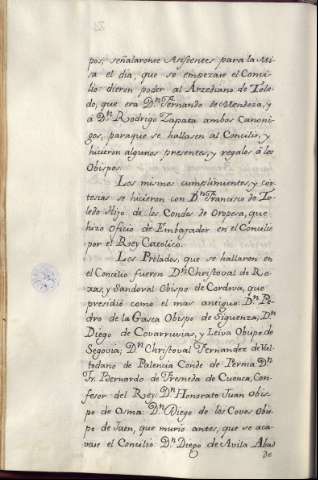 pos, señalaronse Asistentes para la Mi-
sa el dia, que se empezase el Conci-
lio dieron poder al Arzediano de Tole-
do, que era Dn. Fernando de Mendoza, y
á Dn. Rodrigo Zapata ambos Canoni-
gos, paraque se hallasen al Concilio, y
hicieron algunos presentes, y regalos á los
Obispos.
Los mismos cumplimientos, y cor-
tesias se hicieron con Dn. Francisco de To-
ledo Hijo de los Condes de Oropesa, que
hizo Oficio de Embajador en el Concilio
por el Rey Catolico.
Los Prelados, que se hallaron en
el Concilio fueron Dn. Christoval de Ro-
xas, y Sandoval Obispo de Cordova, que
presidió como el mas antiguo: Dn. Pe-
dro de la Gasca Obispo de Siguenza; Dn.
Diego de Covarruvias, y Leiva Obispo de
Segovia; Dn. Christoval Fernandez de Val-
todano de Palencia Conde de Pernia Dn.
Fr. Bernardo de Freneda de Cuenca, Con-
fesor del Rey: Dn. Honorato Juan Obis-
po de Osma: Dn. Diego de los Coves Obis-
po de Jaen, que murio antes, que se aca-
vase el Concilio Dn. Diego de Avila Abad
de